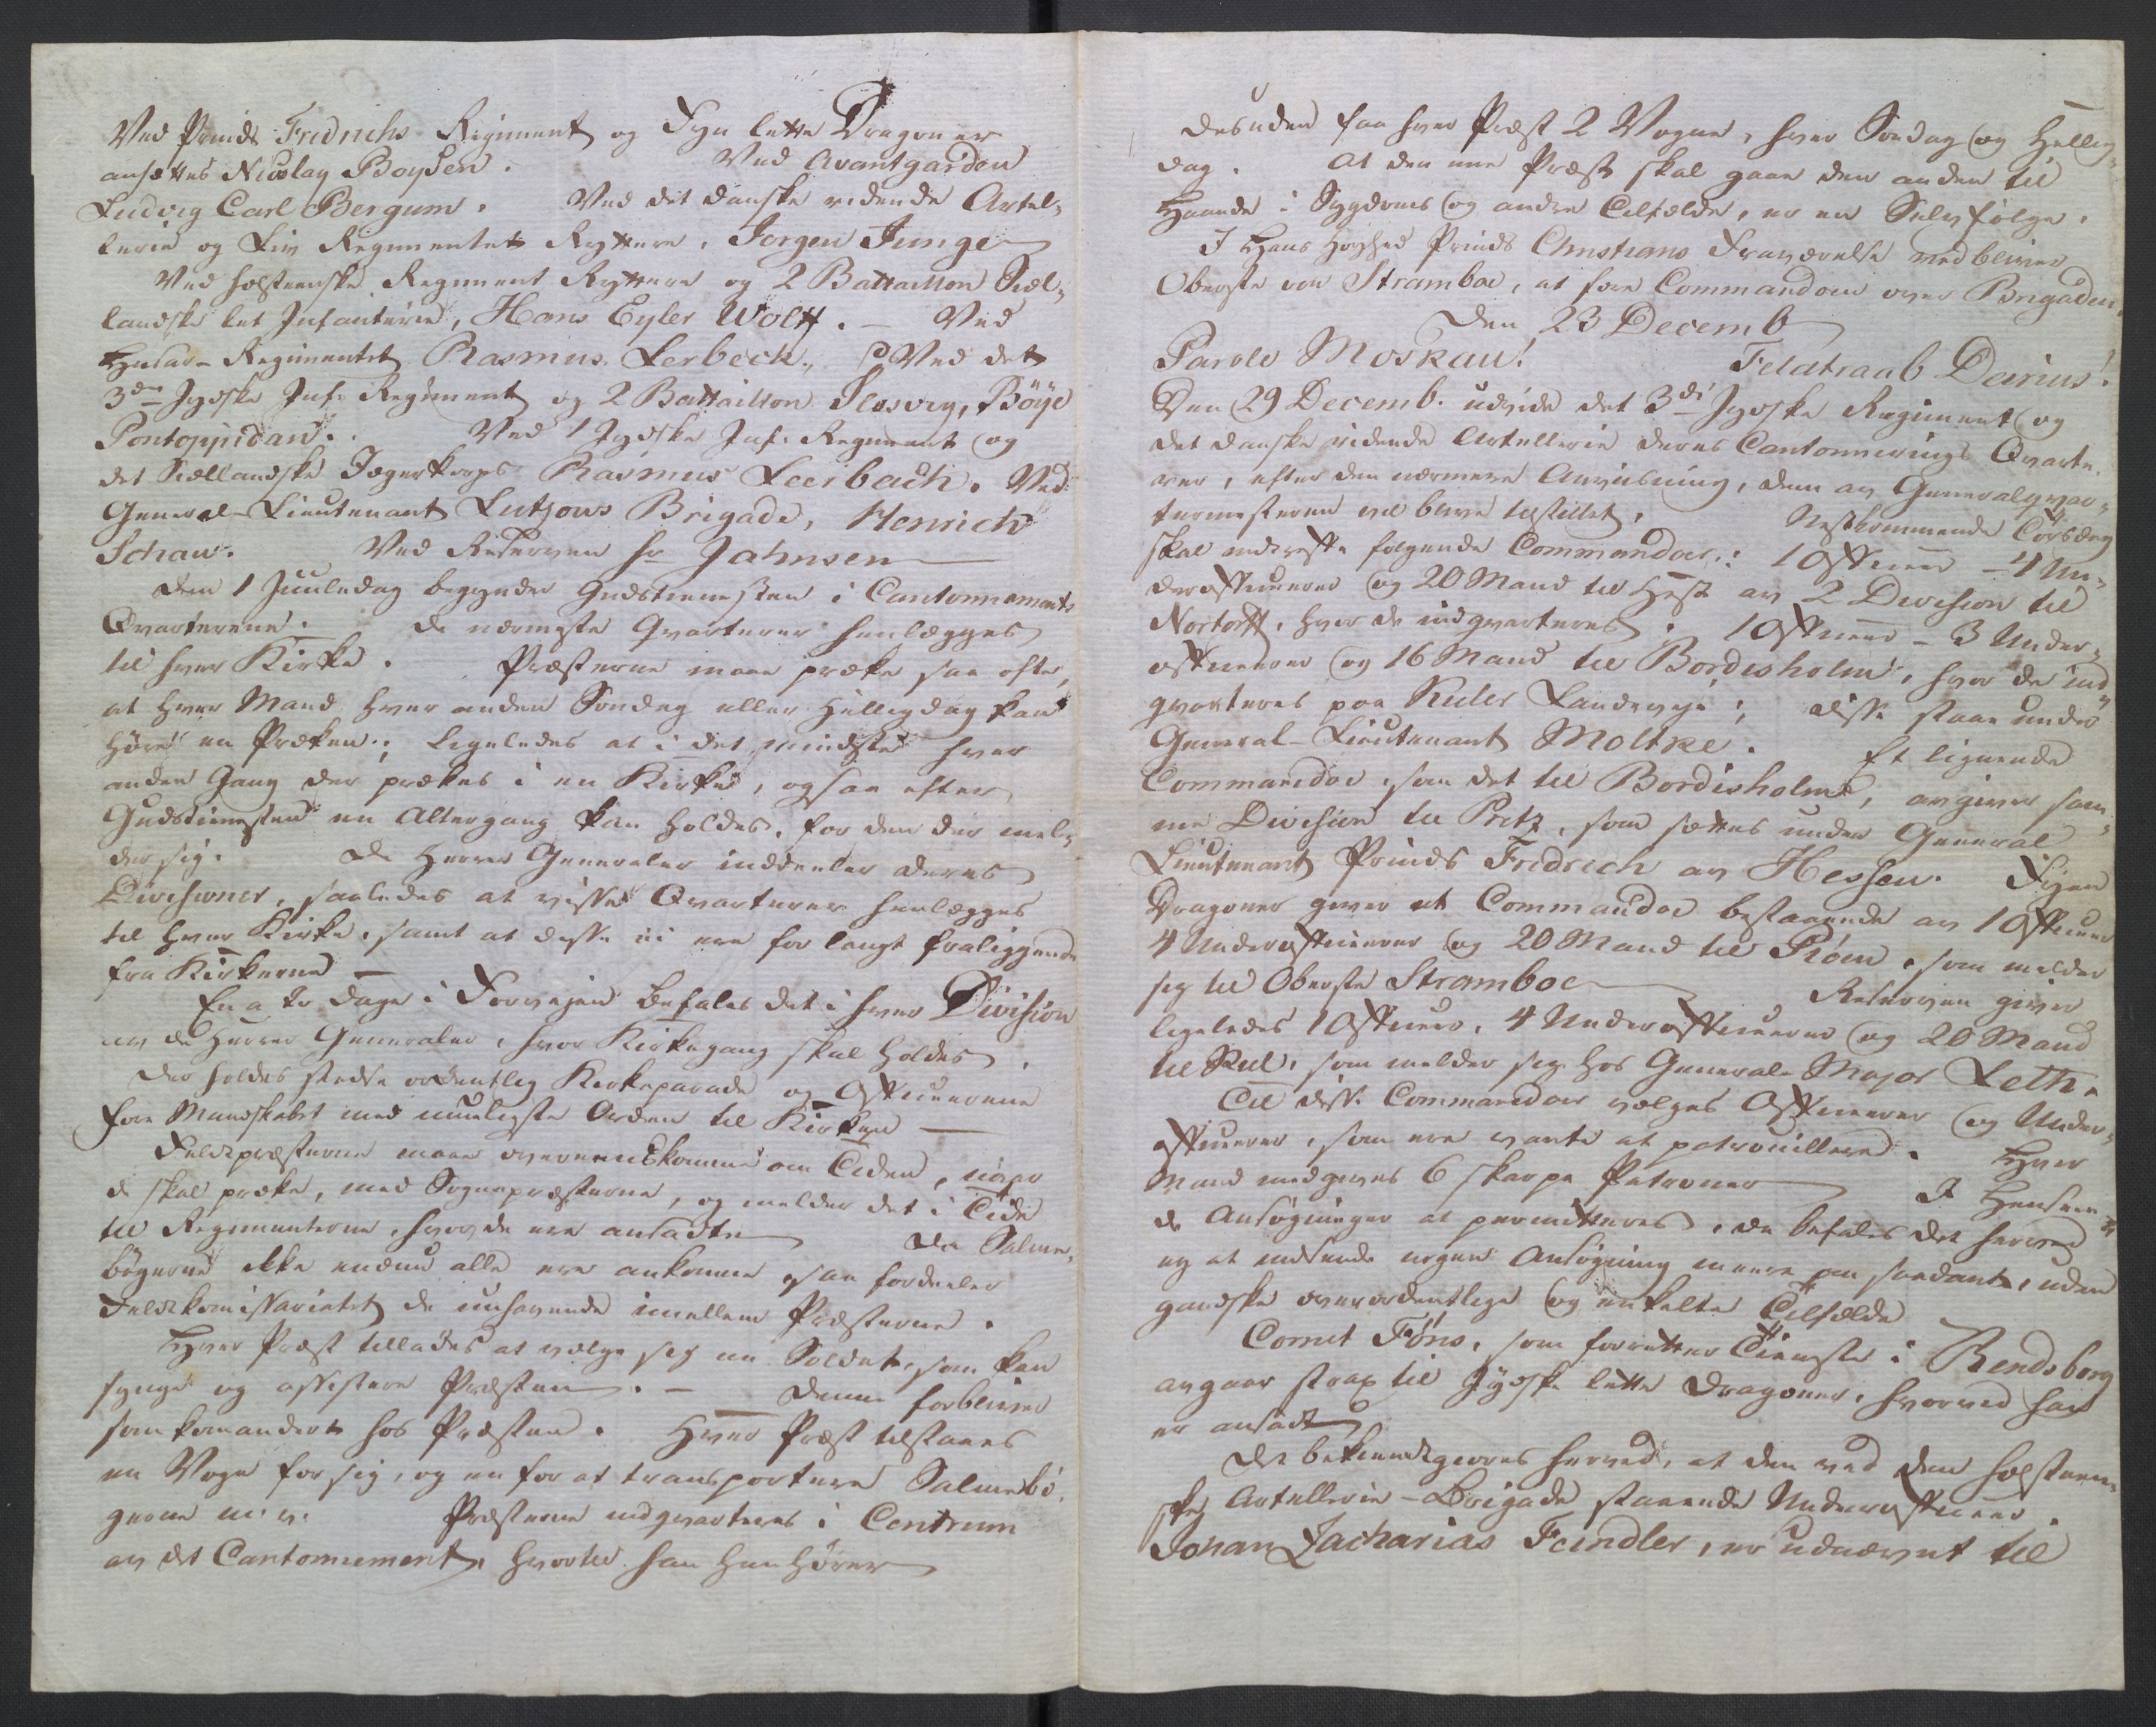 Ved Prinds Fridrichs Regiment og Fyn lette Dragoner
ansættes Nicolay Boysen. Ved Avantgarden
Ludvig Carl Bergum. Ved det danske ridende Artel-
lerie og Liv Regimentet Ryttere, Jorgen Junge
Ved holsteenske Regiment Ryttere og 2 Battaillon Siæl-
landske let Infanterie, Hans Eyler Wolff. — Ved
Husar-Regimentet Rasmus Lerbeck. Ved det
3die Jydske Inf. Regiment og 2 Battaillon Slesvig, Böye
Pontoppidan. Ved 1 Jydske Inf. Regiment og
det Siællandske Jægerkorps Rasmus Leerbach. Ved
General-Lieutenant Lutzows Brigade, Henrich
Schau. Ved Reserven Hr Jahnsen
Den 1 Juuledag begynder Gudstienesten i Cantonnements
Qvartererne. De nærmeste Qvarterer henlægges
til hver Kirke. Præsterne maae præke saa ofte,
at hver Mand hver anden Søndag eller Helligdag kan
høre en Præken; ligeledes at i det mindste hver
anden Gang der prækes i en Kirke, ogsaa efter
Gudstienesten en Altergang kan holdes, for dem der mel-
der sig. De Herrer Generaler inddeeler deres
Divisioner, saaledes at visse Qvarterer henlægges
til hver Kirke, samt at disse ei ere for langt fraliggende
fra Kirkerne —
En a to Dage i Forvejen befales det i hver Division
av de Herrer Generaler, hvor Kirkegang skal holdes.
Der holdes stedse ordentlig Kirkeparade og Officererne
føre Mandskabet med muuligste Orden til Kirken —
Feldtpræsterne maae overeenskomme om Tiden, naar
de skal præke, med Sognepræsterne, og melder det i Tide
til Regimenterne, hvor de ere ansadte Da Salme-
bøgerne ikke endnu alle ere ankomne, saa fordeeler
Feldtkomissariatet de nuhavende imellem Præsterne.
Hver Præst tillades at vælge sig en Soldat, som kan
synge og assistere Præsten. — Denne forbliver
som komanderet hos Præsten. Hver Præst tilstaaes
en Vogn for sig, og en for at transportere Salmebø-
gerne m. v. Præsterne indqvarteres i Centrum
av det Cantonnement, hvortil han henhører
desuden faa hver Præst 2 Vogne, hver Søndag og Hellig-
dag. At den ene Præst skal gaae den anden til
Haande i Sygdoms og andre Tilfælde, er en Selvfølge.
I Hans Høyhed Prinds Christians Fraværelse vedbliver
Oberste von Stramboe, at føre Commandoen over Brigaden.
Den 23 Decemb
Parole Moskau! Feldtraab Darius!
Den 29 Decemb. udvide det 3die Jydske Regiment og
det danske ridende Artellerie deres Cantonnerings Qvarte-
rer, efter den nærmere Anvisning, dem av Generalqvar-
termesteren vil blive tilstillet. Nestkommende Torsdag
skal indtreffe følgende Commandoer: 1 Officeer — 4 Un-
derofficerer og 20 Mand til Hest av 2 Division til
Nortorff, hvor de indqvarteres. 1 Officeer — 3 Under-
officerer og 16 Mand til Bordisholm, hvor de ind-
qvarteres paa Kieler Landeveje; disse staae under
General-Lieutenant Moltke. Et lignende
Commandoe, som det til Bordisholm, avgiver sam-
me Division til Pretz, som sættes under General
Lieutenant Prinds Fridrich av Hessen. Fyen
Dragoner giver et Commandoe bestaaende av 1 Officeer
4 Underofficerer og 20 Mand til Ploen, som melder
sig til Oberste Stramboe Reserven giver
ligeledes 1 Officeer, 4 Underofficerer og 20 Mand
til Kiel, som melder sig hos General-Major Leth.
Til disse Commandoer vælges Officerer og Under-
officerer, som ere vante at patrouillere. Hver
Mand medgives 6 skarpe Patroner I Henseen-
de Ansøgninger at permitteres, da befales det herved
ey at indsende nogen Ansøgning meere om saadant, uden
gandske overordentlige og enkelte Tilfælde
Cornet Föns, som forretter Tieneste i Rendsborg
avgaar strax til Jydske lette Dragoner, hvorved han
er ansadt
Det bekiendtgiøres herved, at den ved den holsteen-
ske Artellerie-Brigade staaende Underofficeer
Johan Zacharias Feindler, er udnævnt til